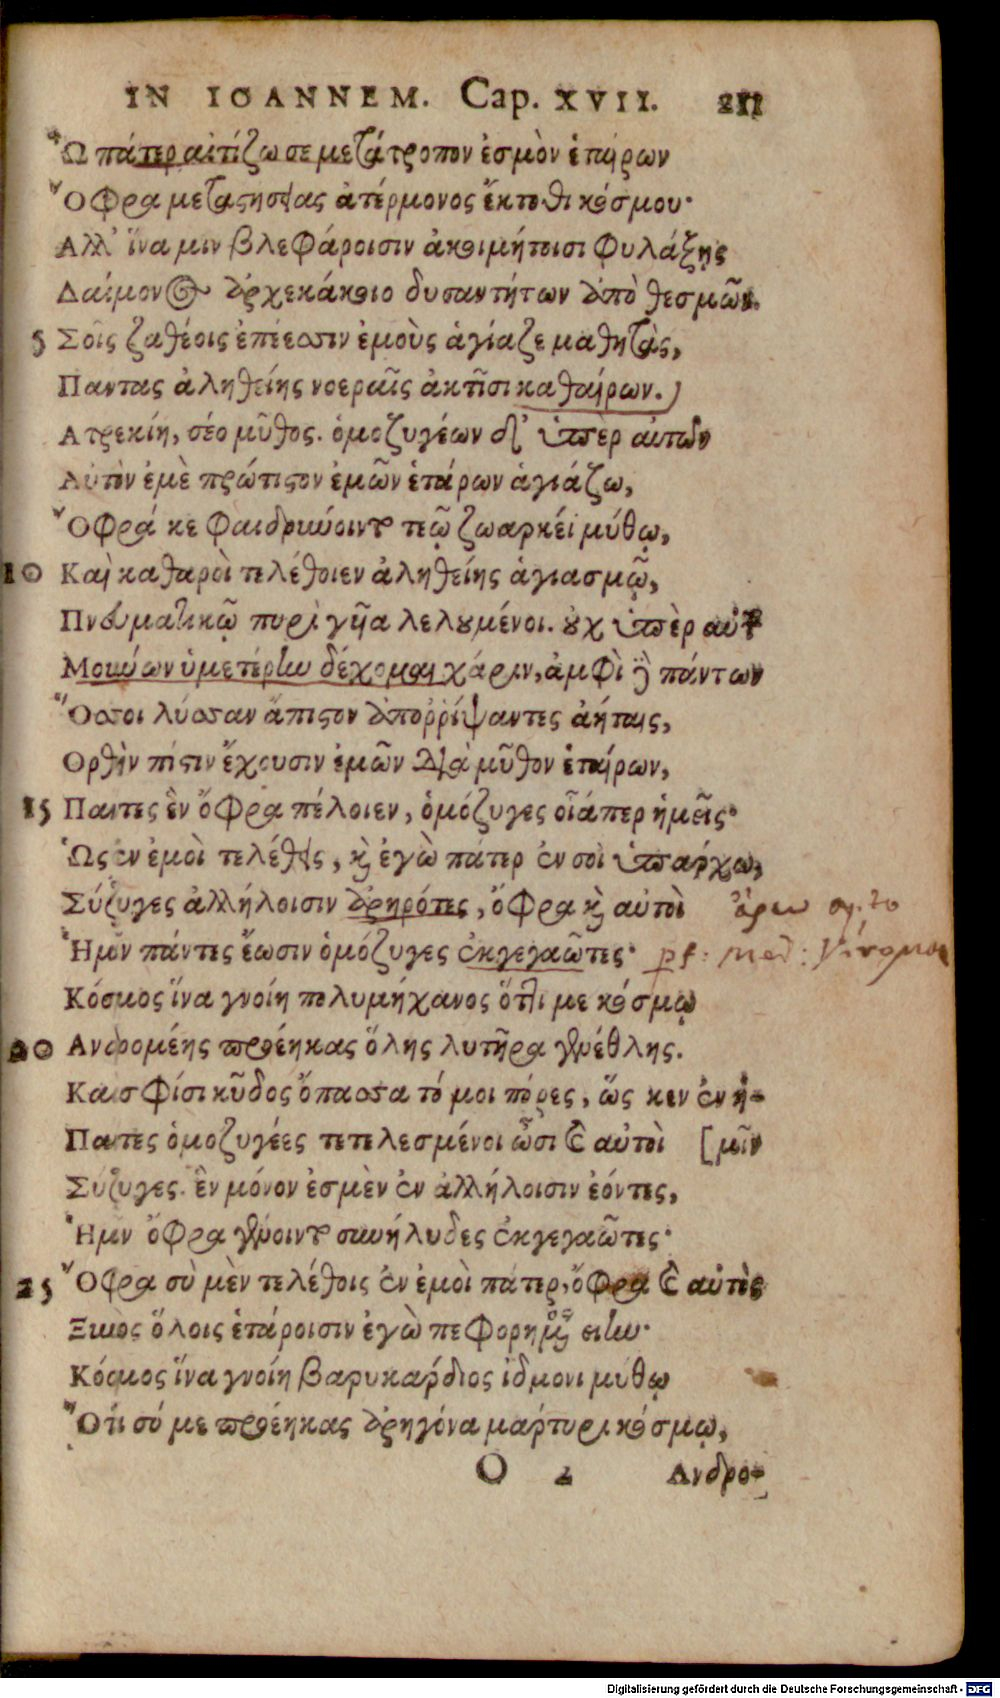 IN IOANNEM. Cap. XVII. 211
Ὦ πάτερ αἰτίζω σε μετάτροπον ἐσμὸν ἑταίρων
Ὄφρα μεταστήσῃς ἀτέρμονος ἔκτοθι κόσμου·
Ἀλλ' ἵνα μιν βλεφάροισιν ἀκοιμήτοισι φυλάξῃς
Δαίμονος ἀρχεκάκοιο δυσαντήτων ἀπὸ θεσμῶν.
5 Σοῖς ζαθέοις ἐπέεσσιν ἐμοὺς ἁγίαζε μαθητὰς,
Παντας ἀληθείης νοεραῖς ἀκτῖσι καθαίρων.
Ατρεκίη, σέο μῦθος. ὁμοζυγέων δ' ὑπὲρ αὐτῶν
Αὐτὸν ἐμὲ πρώτιστον ἐμῶν ἑτάρων ἁγιάζω,
Ὄφρά κε φαιδρύνοιντο τεῷ ζωαρκέι μύθῳ,
10 Καὶ καθαροὶ τελέθοιεν ἀληθείης ἁγιασμῷ,
Πνευματικῷ πυρὶ γῆα λελουμένοι. οὐχ ὑπὲρ αὐτῶν
Μούνων ὑμετέρην δέχομαι χάριν, ἀμφὶ καὶ πάντων
Ὅσσοι λύσσαν ἄπιστον ἀπορρίψαντες ἀήταις,
Ορθὴν πίστιν ἔχουσιν ἐμῶν διὰ μῦθον ἑταίρων,
15 Παντες ἓν ὄφρα πέλοιεν, ὁμόζυγες οἷάπερ ἡμεῖς·
Ὡς ἐν ἐμοὶ τελέθεις, καὶ ἐγὼ πάτερ ἐν σοὶ ὑπάρχω,
Σύζυγες ἀλλήλοισιν ἀρηρότες, ὄφρα καὶ αὐτοὶ
Ἡμῖν πάντες ἔωσιν ὁμόζυγες ἐκγεγαῶτες·
Κόσμος ἵνα γνοίη πολυμήχανος ὅττι με κόσμῳ
20 Ανδρομέης προέηκας ὅλης λυτῆρα γενέθλης.
Και σφίσι κῦδος ὄπασσα τό μοι πόρες, ὥς κεν ἐν ἡ-
Παντες ὁμοζυγέες τετελεσμένοι ὦσι καὶ αὐτοὶ [μῖν
Σύζυγες. ἓν μόνον ἐσμὲν ἐν ἀλλήλοισιν ἐόντες,
Ἡμῖν ὄφρα γένοιντο συνήλυδες ἐκγεγαῶτες·
25 Ὄφρα σὺ μὲν τελέθοις ἐν ἐμοὶ πάτερ, ὄφρα καὶ αὐτὸς
Ξυνὸς ὅλοις ἑτάροισιν ἐγὼ πεφορημένος εἴην·
Κόσμος ἵνα γνοίη βαρυκάρδιος ἴδμονι μύθῳ
Ὅτι σύ με προέηκας ἀρηγόνα μάρτυρι κόσμῳ,
O 2 Ανδρο-
Digitalisierung gefördert durch die Deutsche Forschungsgemeinschaft - DFG